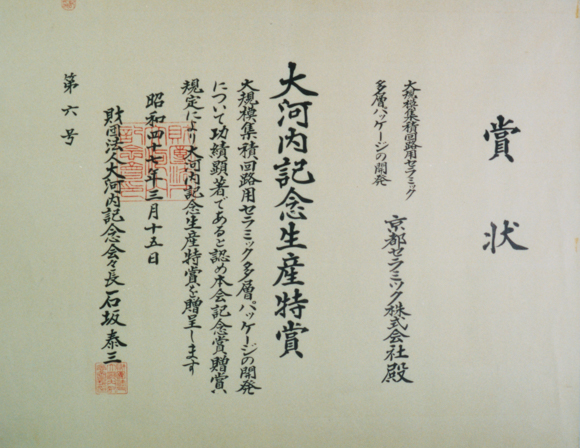 賞状
大規模集積回路用セラミック
多層パッケージの開発
京都セラミック株式会社殿
大河内記念生産特賞
大規模集積回路用セラミック多層パッケージの開発
について功績顕著であると認め本会記念賞贈賞
規定により大河内記念生産特賞を贈呈します
昭和四十七年三月十五日
財団法人大河内記念会々長石坂泰三
第六号